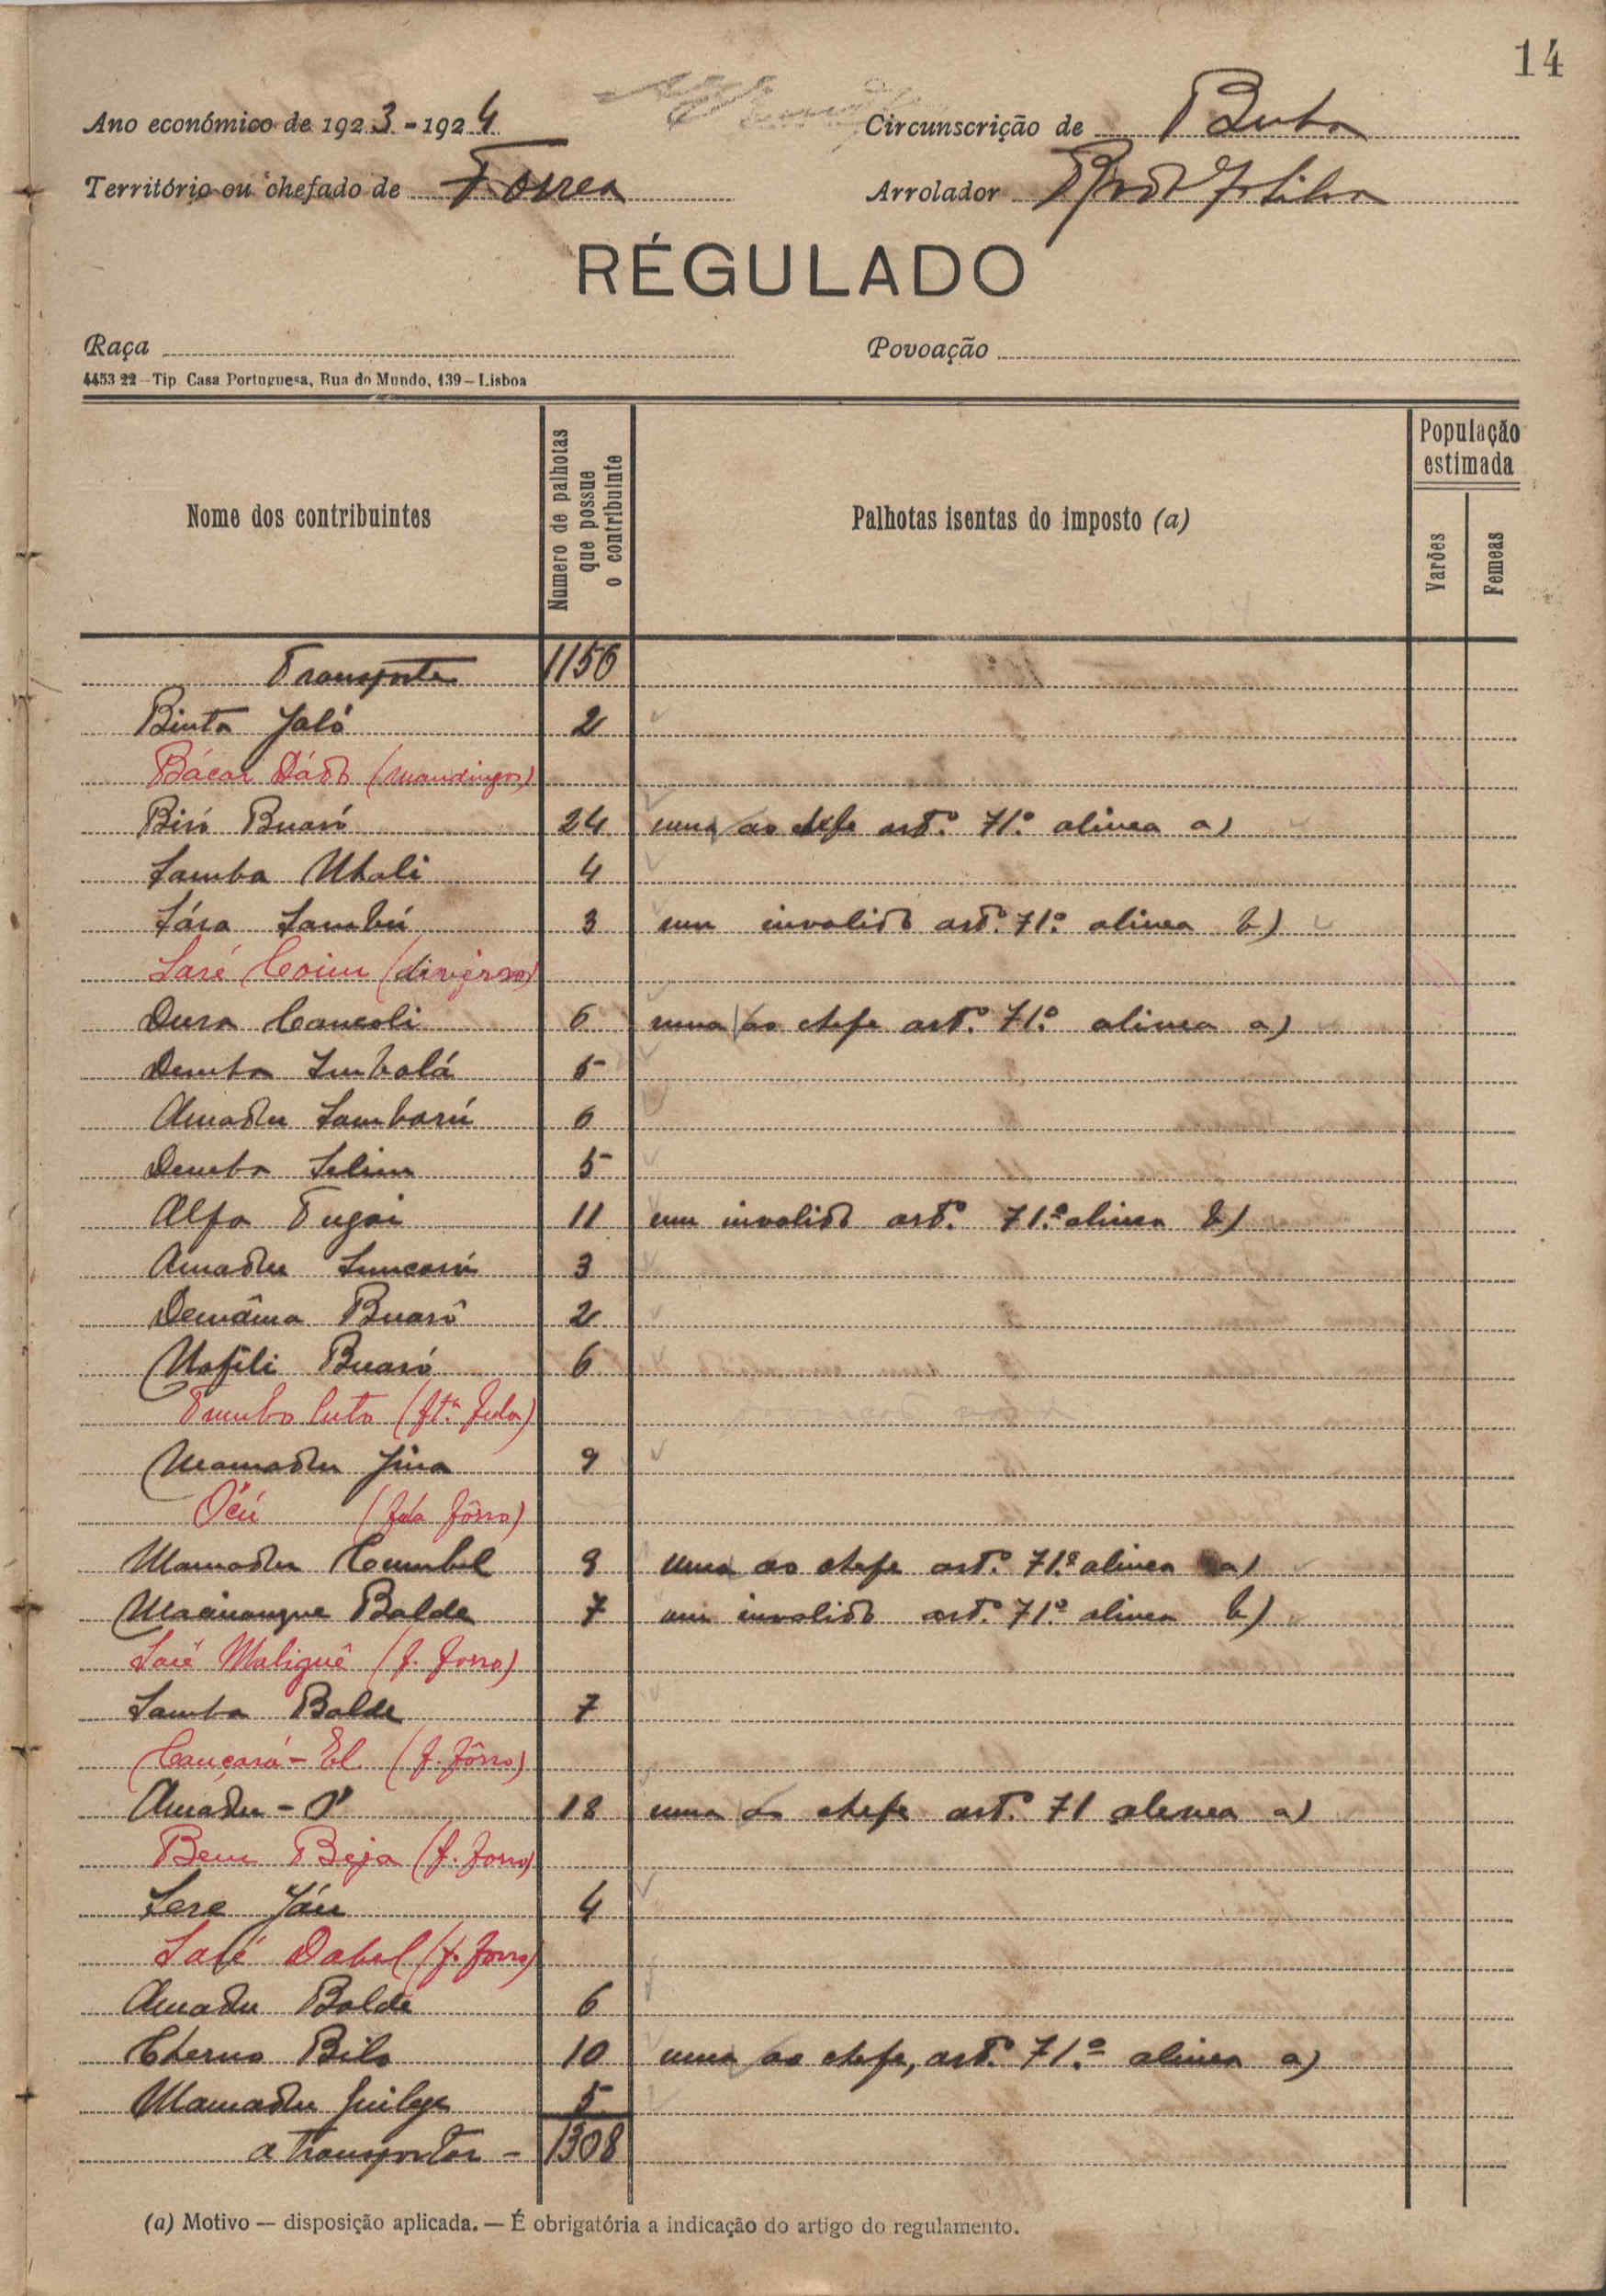 14
Ano económico de 1923-1924
Circunscrição de Buba
Território ou chefado de Forrea
Arrolador
RÉGULADO
Raça
Povoação
4453 22 – Tip. Casa Portuguesa, Rua do Mundo, 139 – Lisboa
Nome dos contribuintes
Numero de palhotas que possue o contribuinte
Palhotas isentas do imposto (a)
População estimada
Varões
Femeas
Transporte 1156
Binta Jaló 2
Bácar Dádo (mandingos)
Biró Buaró 24 uma ao chefe art.º 71.º alinea a)
Samba Uhali 4
Sára Sambú 3 um invalido art.º 71.º alinea b)
Saré Coim (diversos)
Dura Cancoli 6 uma ao chefe art.º 71.º alinea a)
Demba Embalá 5
Amadu Sambarú 6
Demba Selim 5
Alfa Tugai 11 um invalido art.º 71.º alinea b)
Amadu Suncarú 3
Demâma Buarô 2
Nafili Buaró 6
(ft.ª fula)
Mamadu Jina 9
Ócú (fula fôrro)
Mamadu Cumbel 9 uma ao chefe art.º 71.º alinea a)
Balde 7 um invalido art.º 71.º alinea b)
Saré Maliguê (f. forro)
Samba Balde 7
Cançará-El (f. fôrro)
Amadu - O' 18 uma ao chefe art.º 71 alenea a)
Bem Beja (f. forro)
Sere Jáu 4
Saré Dabel (f. forro)
Amadu Balde 6
Cherno Bilo 10 uma ao chefe, art.º 71.º alinea a)
Mamadu Guileje 5
a transportar - 1308
(a) Motivo — disposição aplicada. — É obrigatória a indicação do artigo do regulamento.